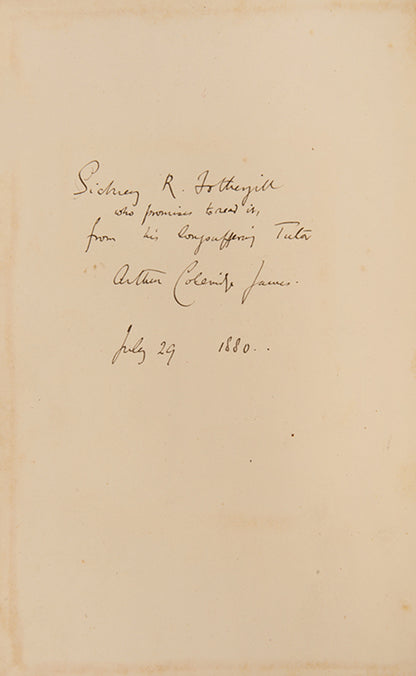 Sidney R. Fothergill
who promises to read it,
from his longsuffering Tutor
Arthur Coleridge James.
July 29 1880..